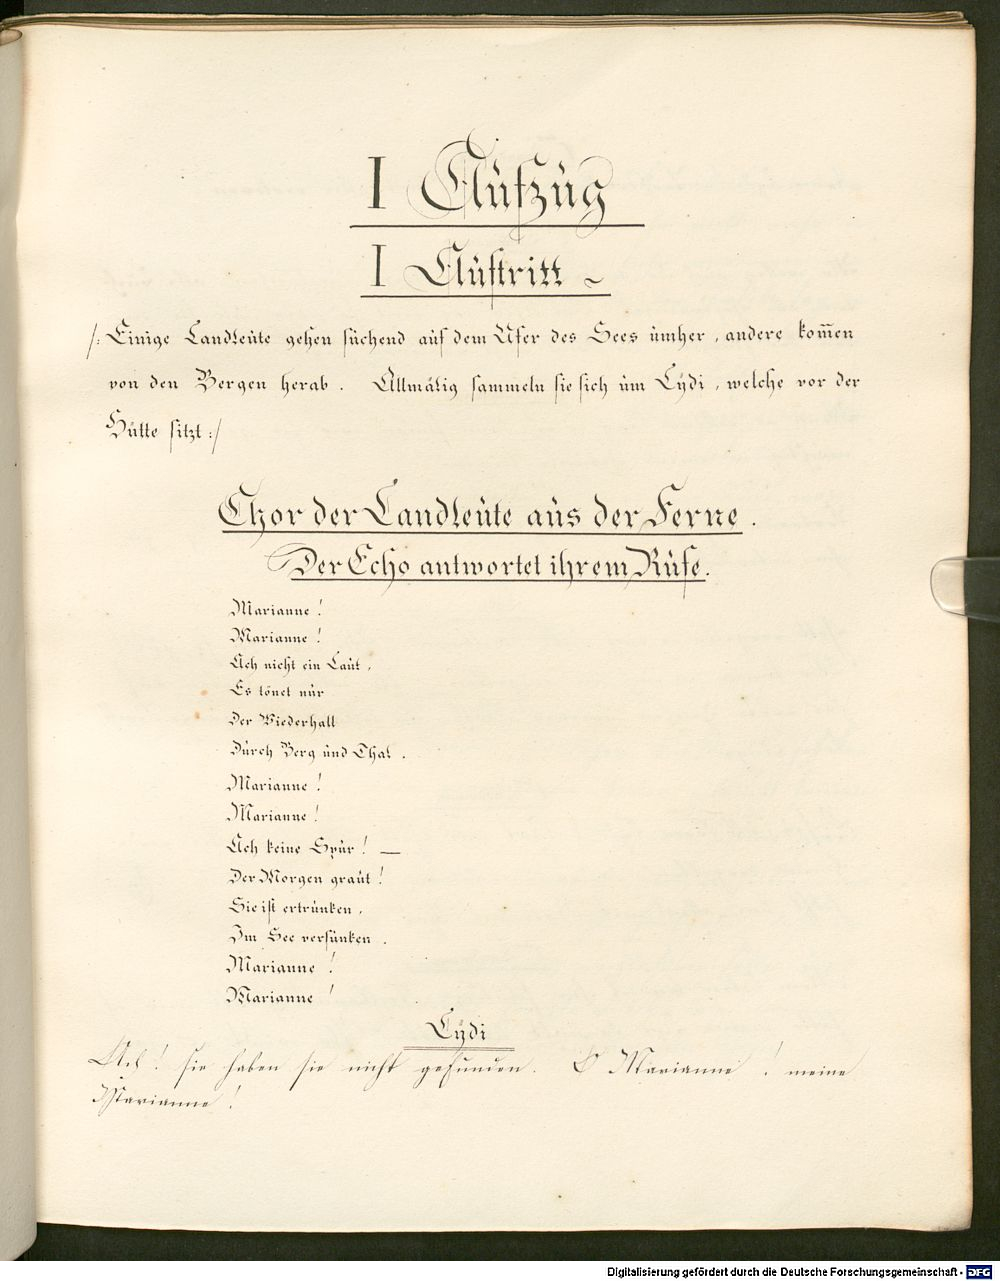 I Aufzug
I Auftritt ~
/: Einige Landleute gehen suchend auf dem Ufer des Sees umher, andere kom̄en
von den Bergen herab. Allmälig sammeln sie sich um Lydi, welche vor der
Hütte sitzt :/
Chor der Landleute aus der Ferne.
Der Echo antwortet ihrem Rufe.
Marianne!
Marianne!
Ach nicht ein Laut,
Es tönet nur
Der Wiederhall
Durch Berg und Thal.
Marianne!
Marianne!
Ach keine Spur! —
Der Morgen graut!
Sie ist ertrunken,
Im See versunken.
Marianne!
Marianne!
Lydi
Ach! sie haben sie nicht gefunden. O Marianne! meine
Marianne!
Digitalisierung gefördert durch die Deutsche Forschungsgemeinschaft - DFG